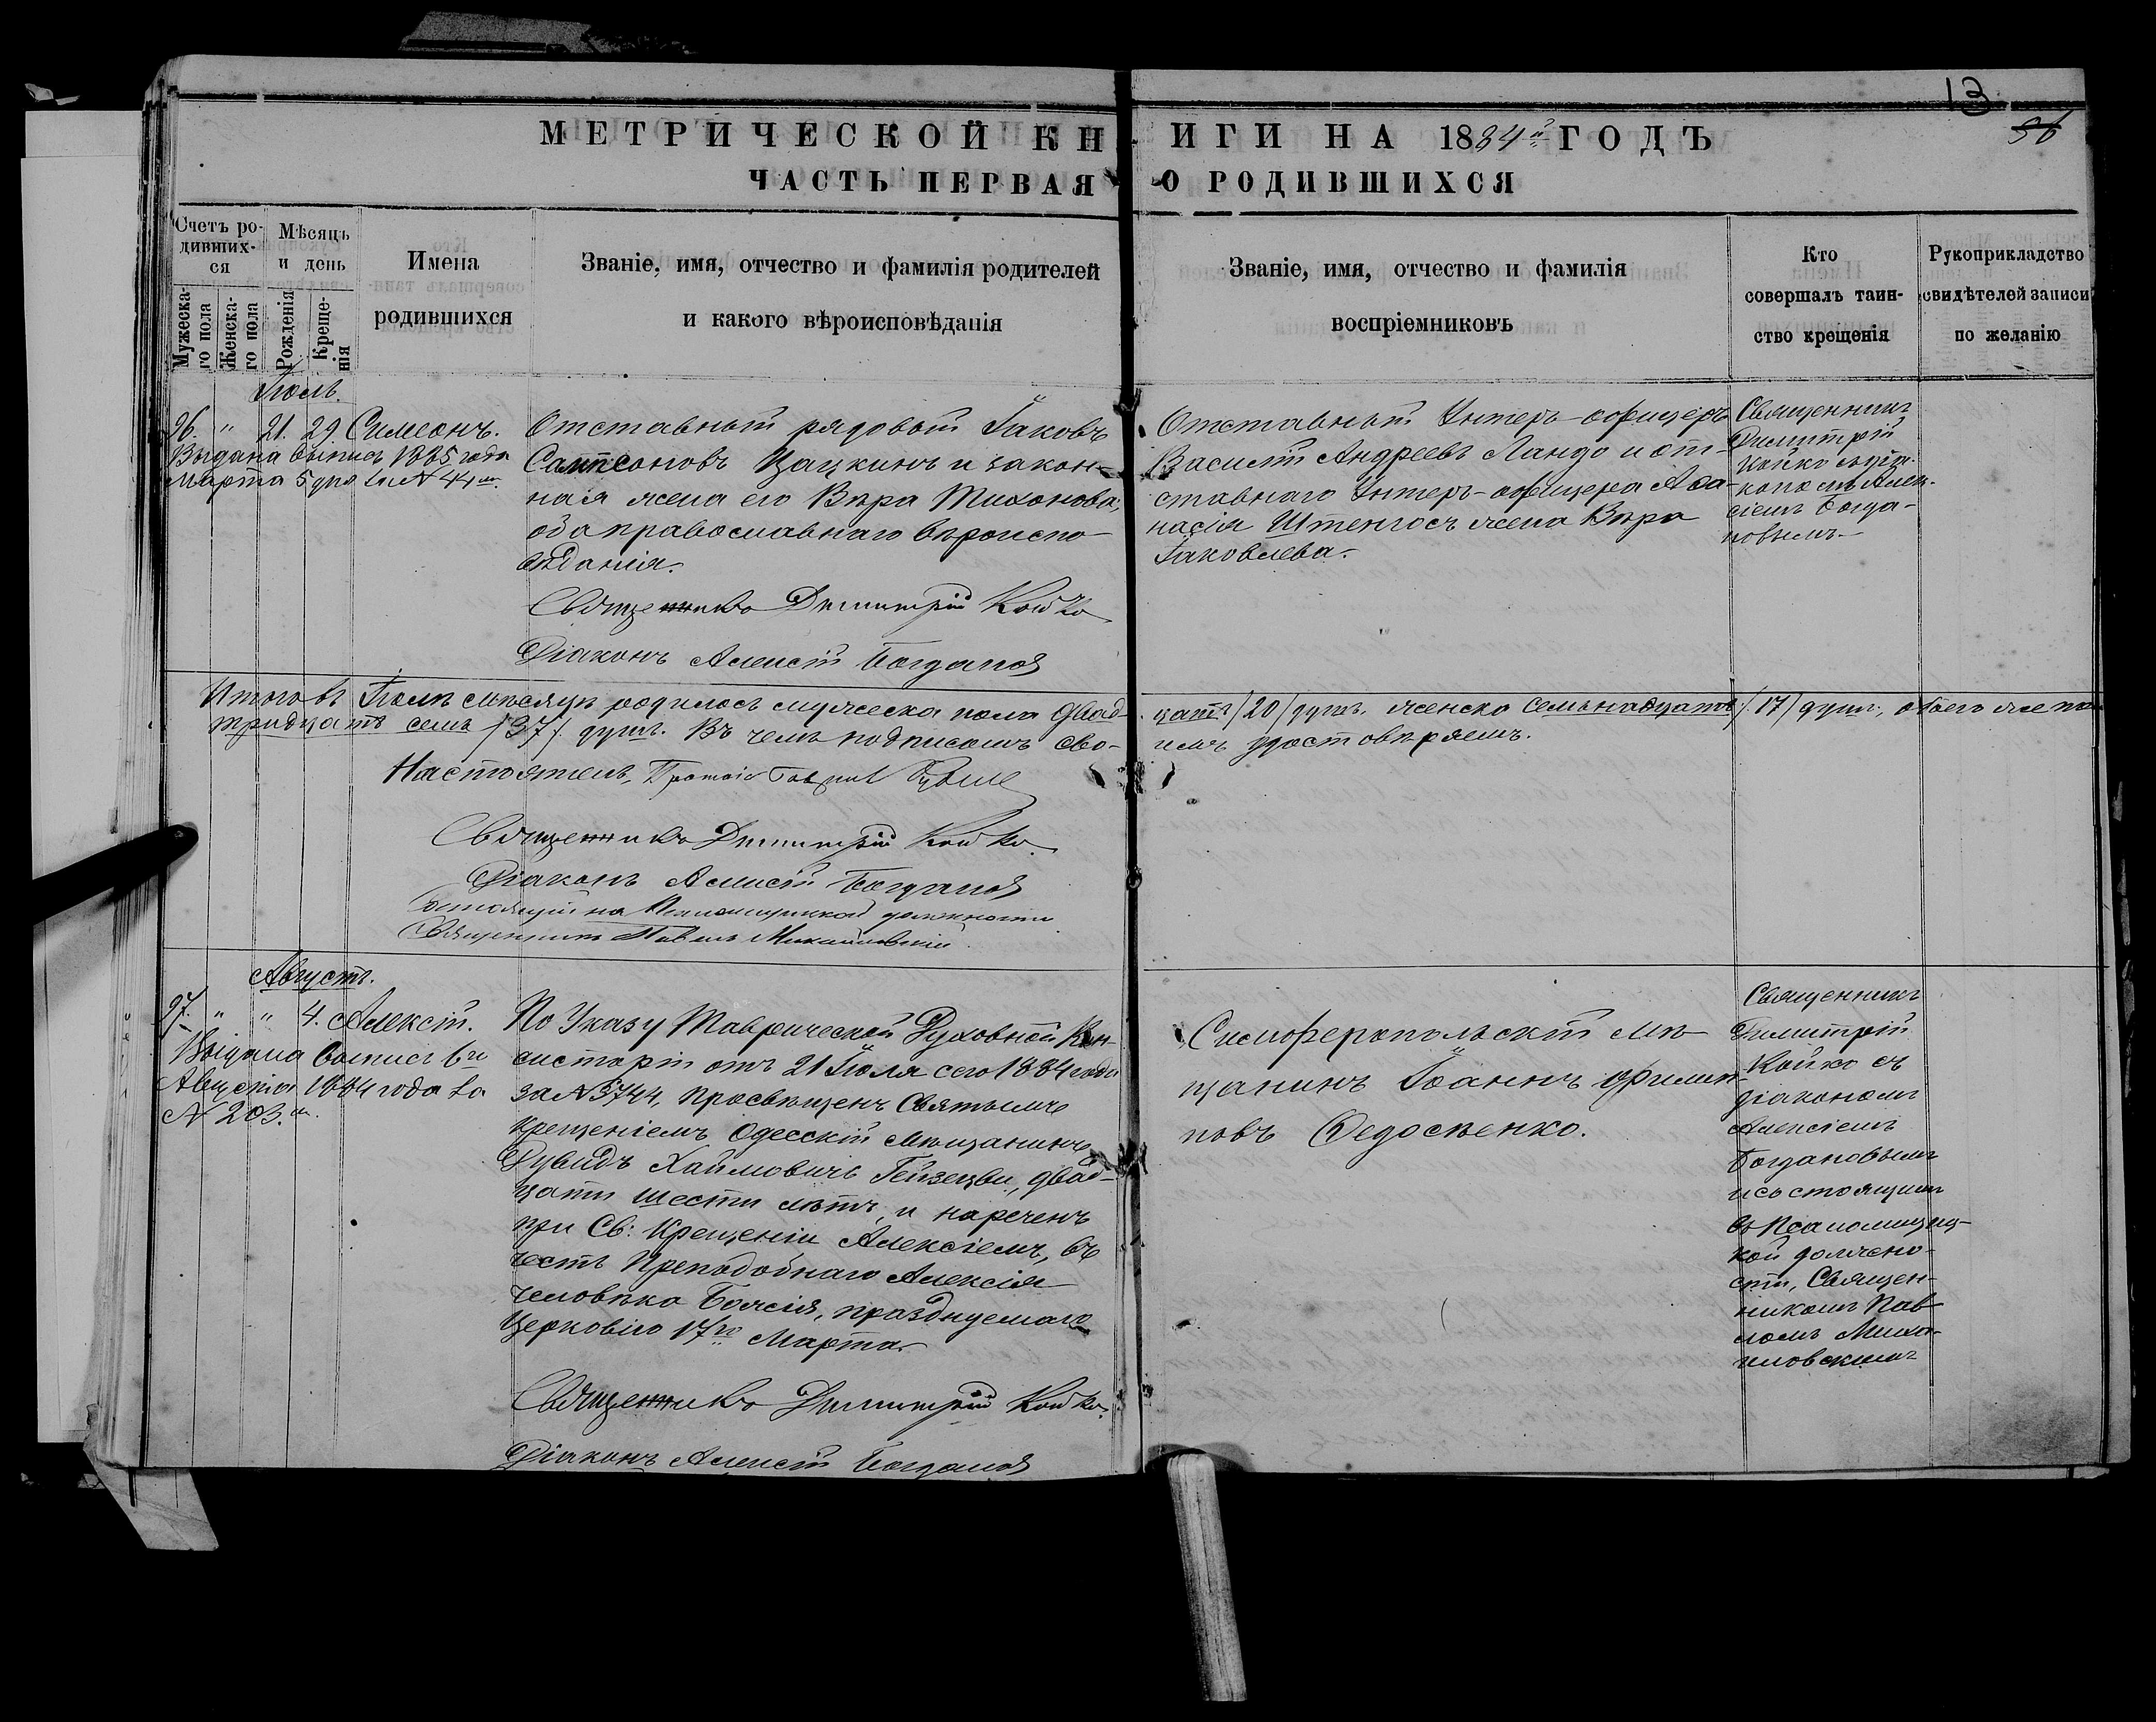 13
56
МЕТРИЧЕСКОЙ КНИГИ НА 1884й ГОДЪ
ЧАСТЬ ПЕРВАЯ О РОДИВШИХСЯ
Счетъ ро-
дивших-
ся
Мужеска-
го пола
Женска-
го пола
Мѣсяцъ
и день
Рожденія
Креще-
нія
Имена
родившихся
Званіе, имя, отчество и фамилія родителей
и какого вѣроисповѣданія
Званіе, имя, отчество и фамилія
воспріемниковъ
Кто
совершалъ таин-
ство крещенія
Рукоприкладство
свидѣтелей записи
по желанію
Іюль.
96. " 21. 29. Симеонъ.
Выдана выпись 1885 года
Марта 5 дня за № 44м.
Отставный рядовый Іаковъ
Сампсоновъ Цацкинъ и закон-
ная жена его Вѣра Тихонова,
оба православнаго вѣроиспо-
вѣданія.
Священникъ Димитрій Койко
Діаконъ Алексій Богдановъ
Отставный Унтеръ-офицеръ
Василій Андреевъ Ландо и от-
ставнаго Унтеръ-офицера Афа-
насія Штенгосъ жена Вѣра
Іаковлева.
Священникъ
Димитрій
Койко съ діа-
кономъ Алек-
сіемъ Богда-
новымъ
Итого въ Іюлѣ мѣсяцѣ родилось мужеска пола двад-
цать /20/ душъ, женска семьнадцать /17/ душъ, обоего же пола
тридцать семь /37/ душъ. Въ чемъ подписомъ сво-
имъ удостовѣряемъ.
Настоятель, Протоіе Гавріил
Священникъ Димитрій Койко
Діаконъ Алексій Богдановъ
Состоящій на Псаломщицкой должности
Священникъ Павелъ Михайловскій
Августъ.
97. " " 4. Алексій.
Выдана выпись 6го
Августа 1884 года за
№ 203.м
По Указу Таврической Духовной Кон-
систоріи отъ 21 Іюля сего 1884 года
за №3744, просвѣщенъ Святымъ
крещеніемъ Одесскій мѣщанинъ
Дувидъ Хаимовичъ Гейзецви, двад-
цати шести лѣтъ, и нареченъ
при Св: Крещеніи Алексіемъ, въ
честь Преподобнаго Алексія
человѣка Божія, празднуемаго
Церковію 17го Марта.
Священникъ Димитрій Койко.
Діаконъ Алексій Богдановъ
Симферопольскій мѣ-
щанинъ Іоаннъ Филип-
повъ Федосѣенко.
Священникъ
Димитрій
Койко съ
діакономъ
Алексіемъ
Богдановымъ
и состоящимъ
въ Псаломщиц-
кой должно-
сти, Священ-
никомъ Пав-
ломъ Миха-
иловскимъ